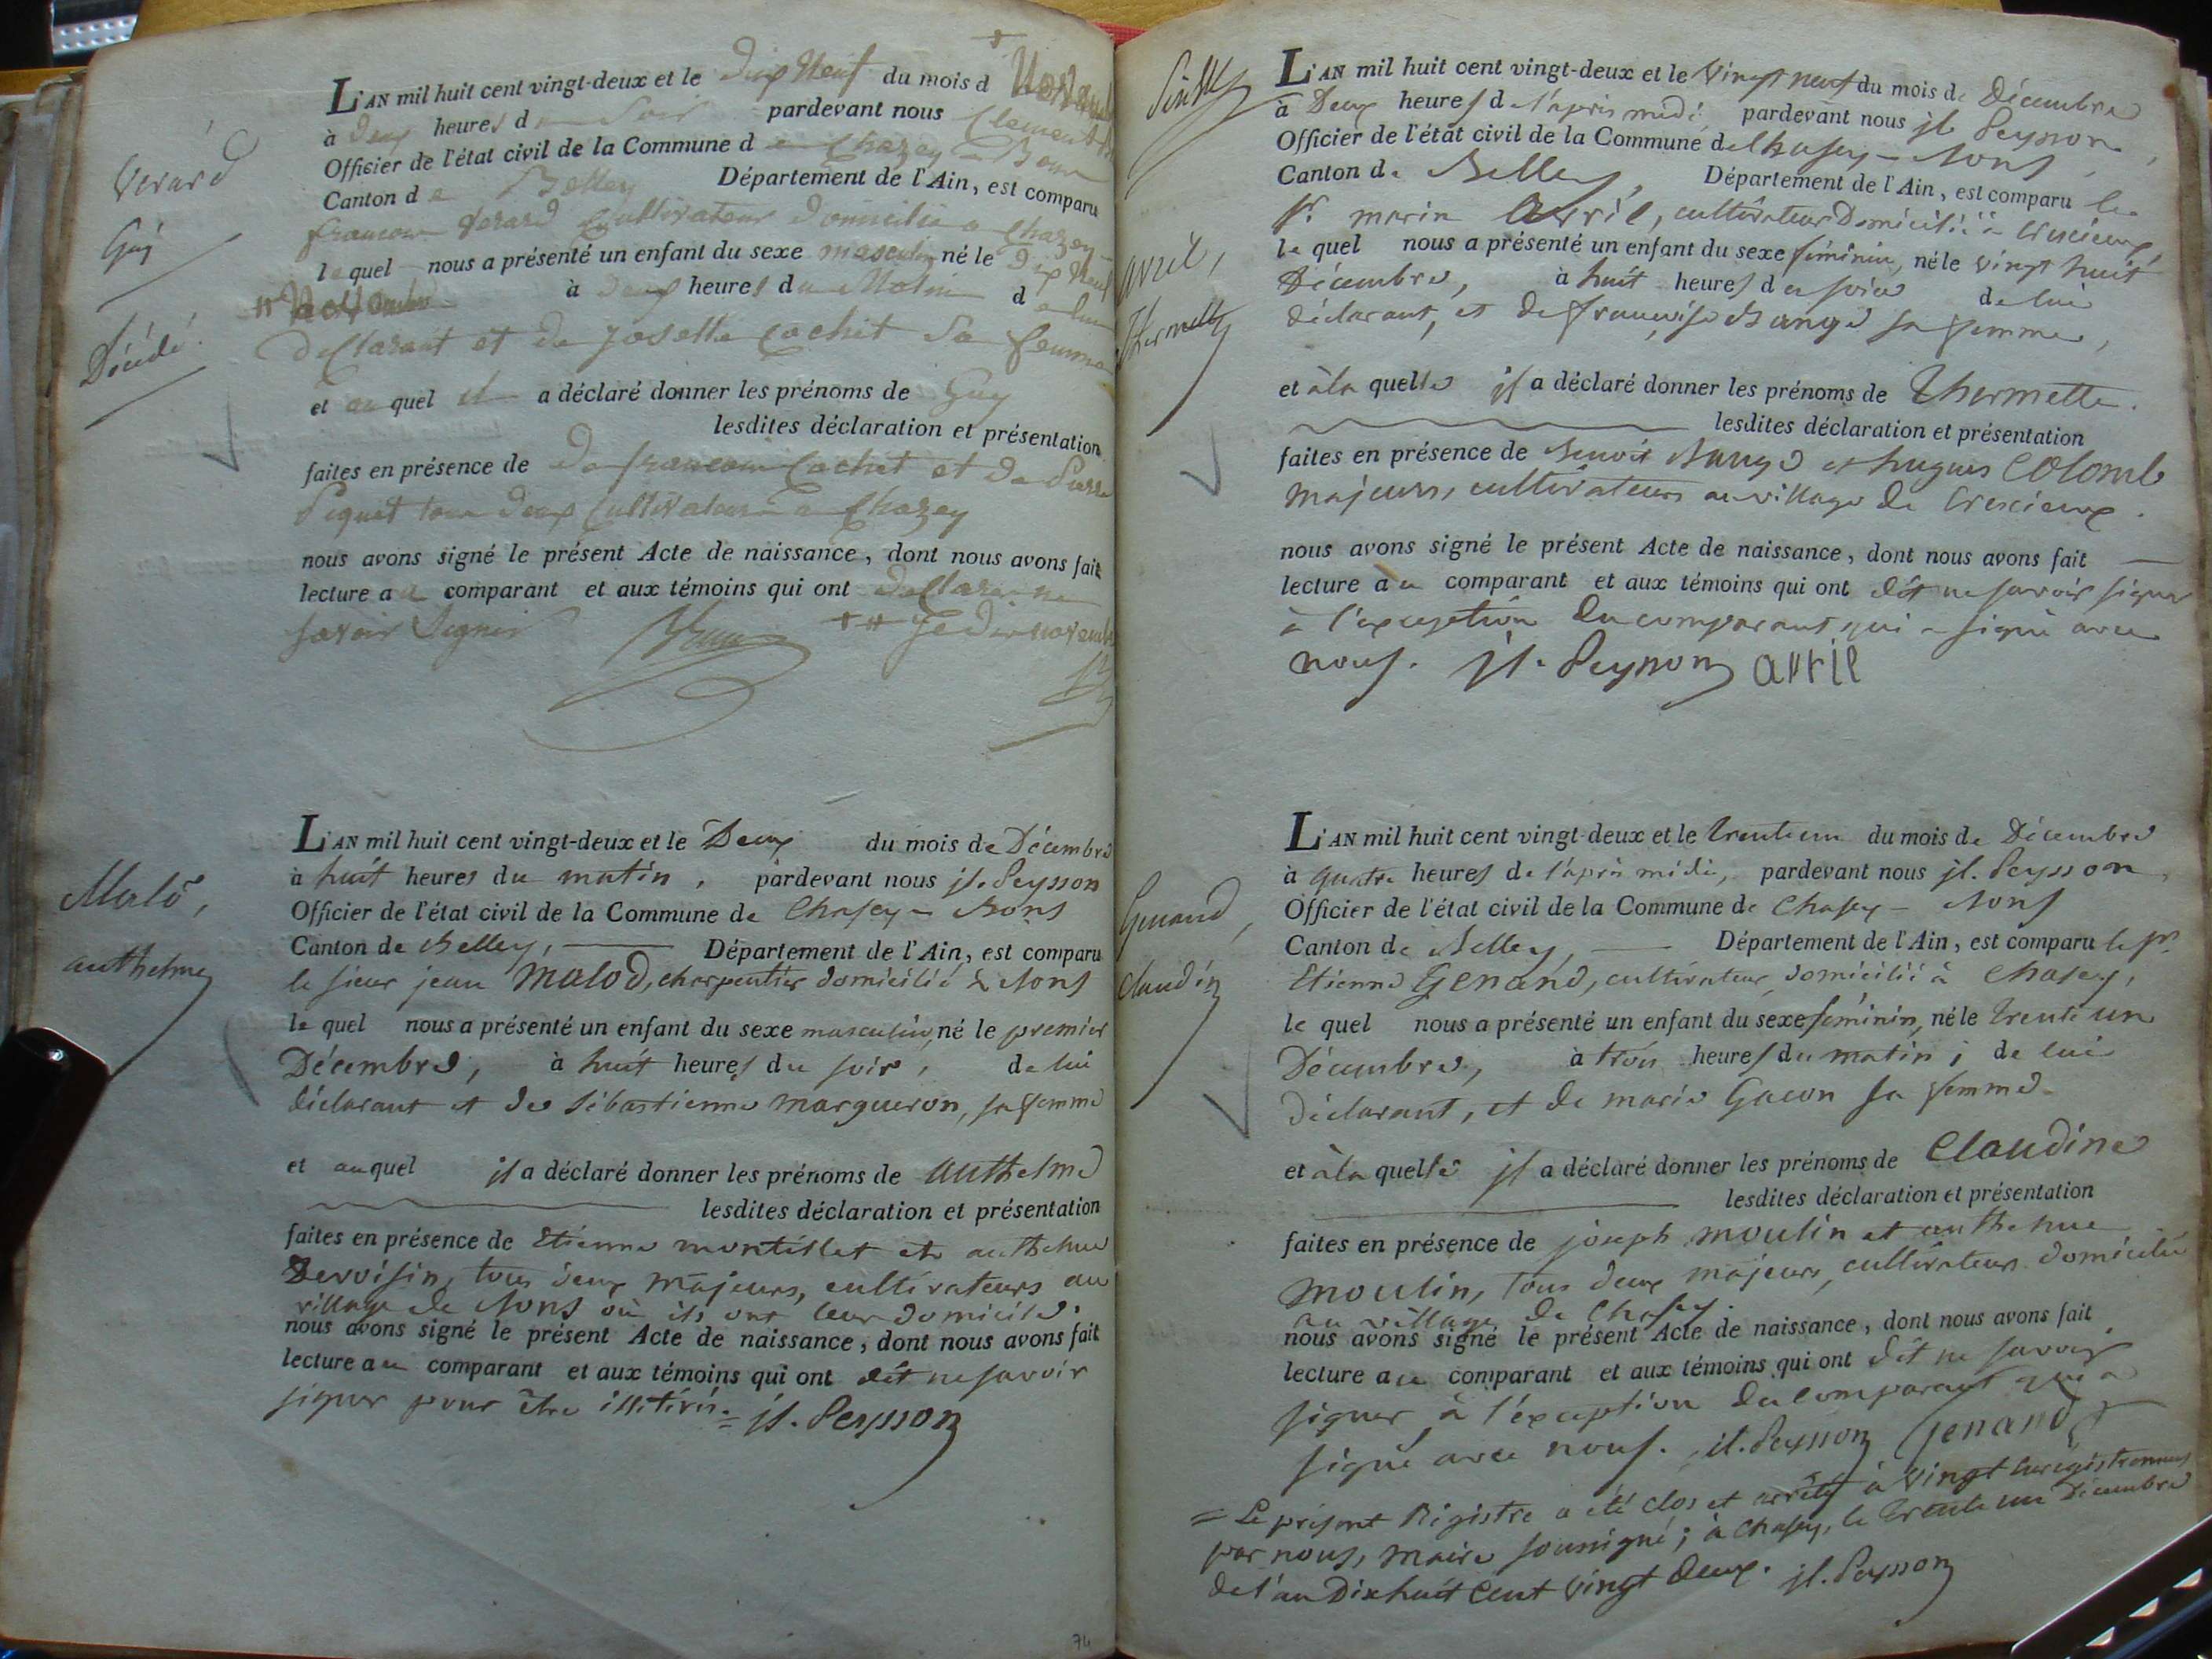 Verard
Guy
Décédé.
L'AN mil huit cent vingt-deux et le dix Neuf du mois d Novembre
à deux heures du Soir pardevant nous Clement
Officier de l'état civil de la Commune de Chazey Bons
Canton de Belley Département de l'Ain, est comparu
francois Verard Cultivateur domicilie a Chazey
lequel nous a présenté un enfant du sexe masculin né le dix Neuf
Novembre à deux heures du Matin de lui
declarant et de josette Cochet Sa femme
et auquel il a déclaré donner les prénoms de Guy
lesdites déclaration et présentation
faites en présence de de francois Cochet et de Pierre
Piquet tous deux Cultivateurs a Chazey
nous avons signé le présent Acte de naissance, dont nous avons fait
lecture au comparant et aux témoins qui ont declare ne
savoir Signer
Malod,
anthelme
L'AN mil huit cent vingt-deux et le Deux du mois de Décembre
à huit heures du matin, pardevant nous jh. Peysson
Officier de l'état civil de la Commune de Chasey - Bons
Canton de Belley, Département de l'Ain, est comparu
le sieur jean Malod, charpentier domicilié à Bons
le quel nous a présenté un enfant du sexe masculin, né le premier
Décembre, à huit heures du soir, de lui
déclarant et de Sébastienne margueron, sa femme
et auquel il a déclaré donner les prénoms de anthelme
lesdites déclaration et présentation
faites en présence de Etienne montillet et anthelme
Devoisin, tous deux majeurs, cultivateurs au
village de Bons où ils ont leur domicile.
nous avons signé le présent Acte de naissance, dont nous avons fait
lecture au comparant et aux témoins qui ont dit ne savoir
signer pour être illitérés. = jh. Peysson
74
avril,
thermette
L'AN mil huit cent vingt-deux et le vingt neuf du mois de Décembre
à Deux heures de l'après midi pardevant nous jh. Peysson,
Officier de l'état civil de la Commune de Chasey - Bons,
Canton de Belley, Département de l'Ain, est comparu le
sr. marin Avril, cultivateur Domicilié à Crescieux,
le quel nous a présenté un enfant du sexe féminin, né le vingt huit
Décembre, à huit heures du soir de lui
déclarant, et de françoise Bange sa femme,
et à la quelle il a déclaré donner les prénoms de Thermette.
lesdites déclaration et présentation
faites en présence de Benoit Bange et hugues COlomb
majeurs, cultivateurs au village de Crescieux.
nous avons signé le présent Acte de naissance, dont nous avons fait
lecture au comparant et aux témoins qui ont dit ne savoir signer
à l'exception du comparant qui a signé avec
nous. jh. Peysson avril
Genand,
claudine
L'AN mil huit cent vingt-deux et le trente un du mois de Décembre
à quatre heures de l'après midi, pardevant nous jh. Peysson,
Officier de l'état civil de la Commune de Chasey - Bons
Canton de Belley, Département de l'Ain, est comparu le sr.
Etienne Genand, cultivateur, domicilié à Chasey,
le quel nous a présenté un enfant du sexe féminin, né le trente un
Décembre, à trois heures du matin, de lui
déclarant, et de marie Gacon sa femme
et à la quelle il a déclaré donner les prénoms de Claudine
lesdites déclaration et présentation
faites en présence de joseph moulin et anthelme
moulin, tous deux majeurs, cultivateurs domiciliés
au village de Chasey.
nous avons signé le présent Acte de naissance, dont nous avons fait
lecture au comparant et aux témoins qui ont dit ne savoir
signer à l'exception du comparant qui a
signé avec nous. jh. Peysson Genand
= Le présent Registre a été clos et arrêté à vingt enregistremens
par nous, maire soussigné; à Chasey, le trente un Décembre
de l'an Dix huit cent vingt deux. jh. Peysson